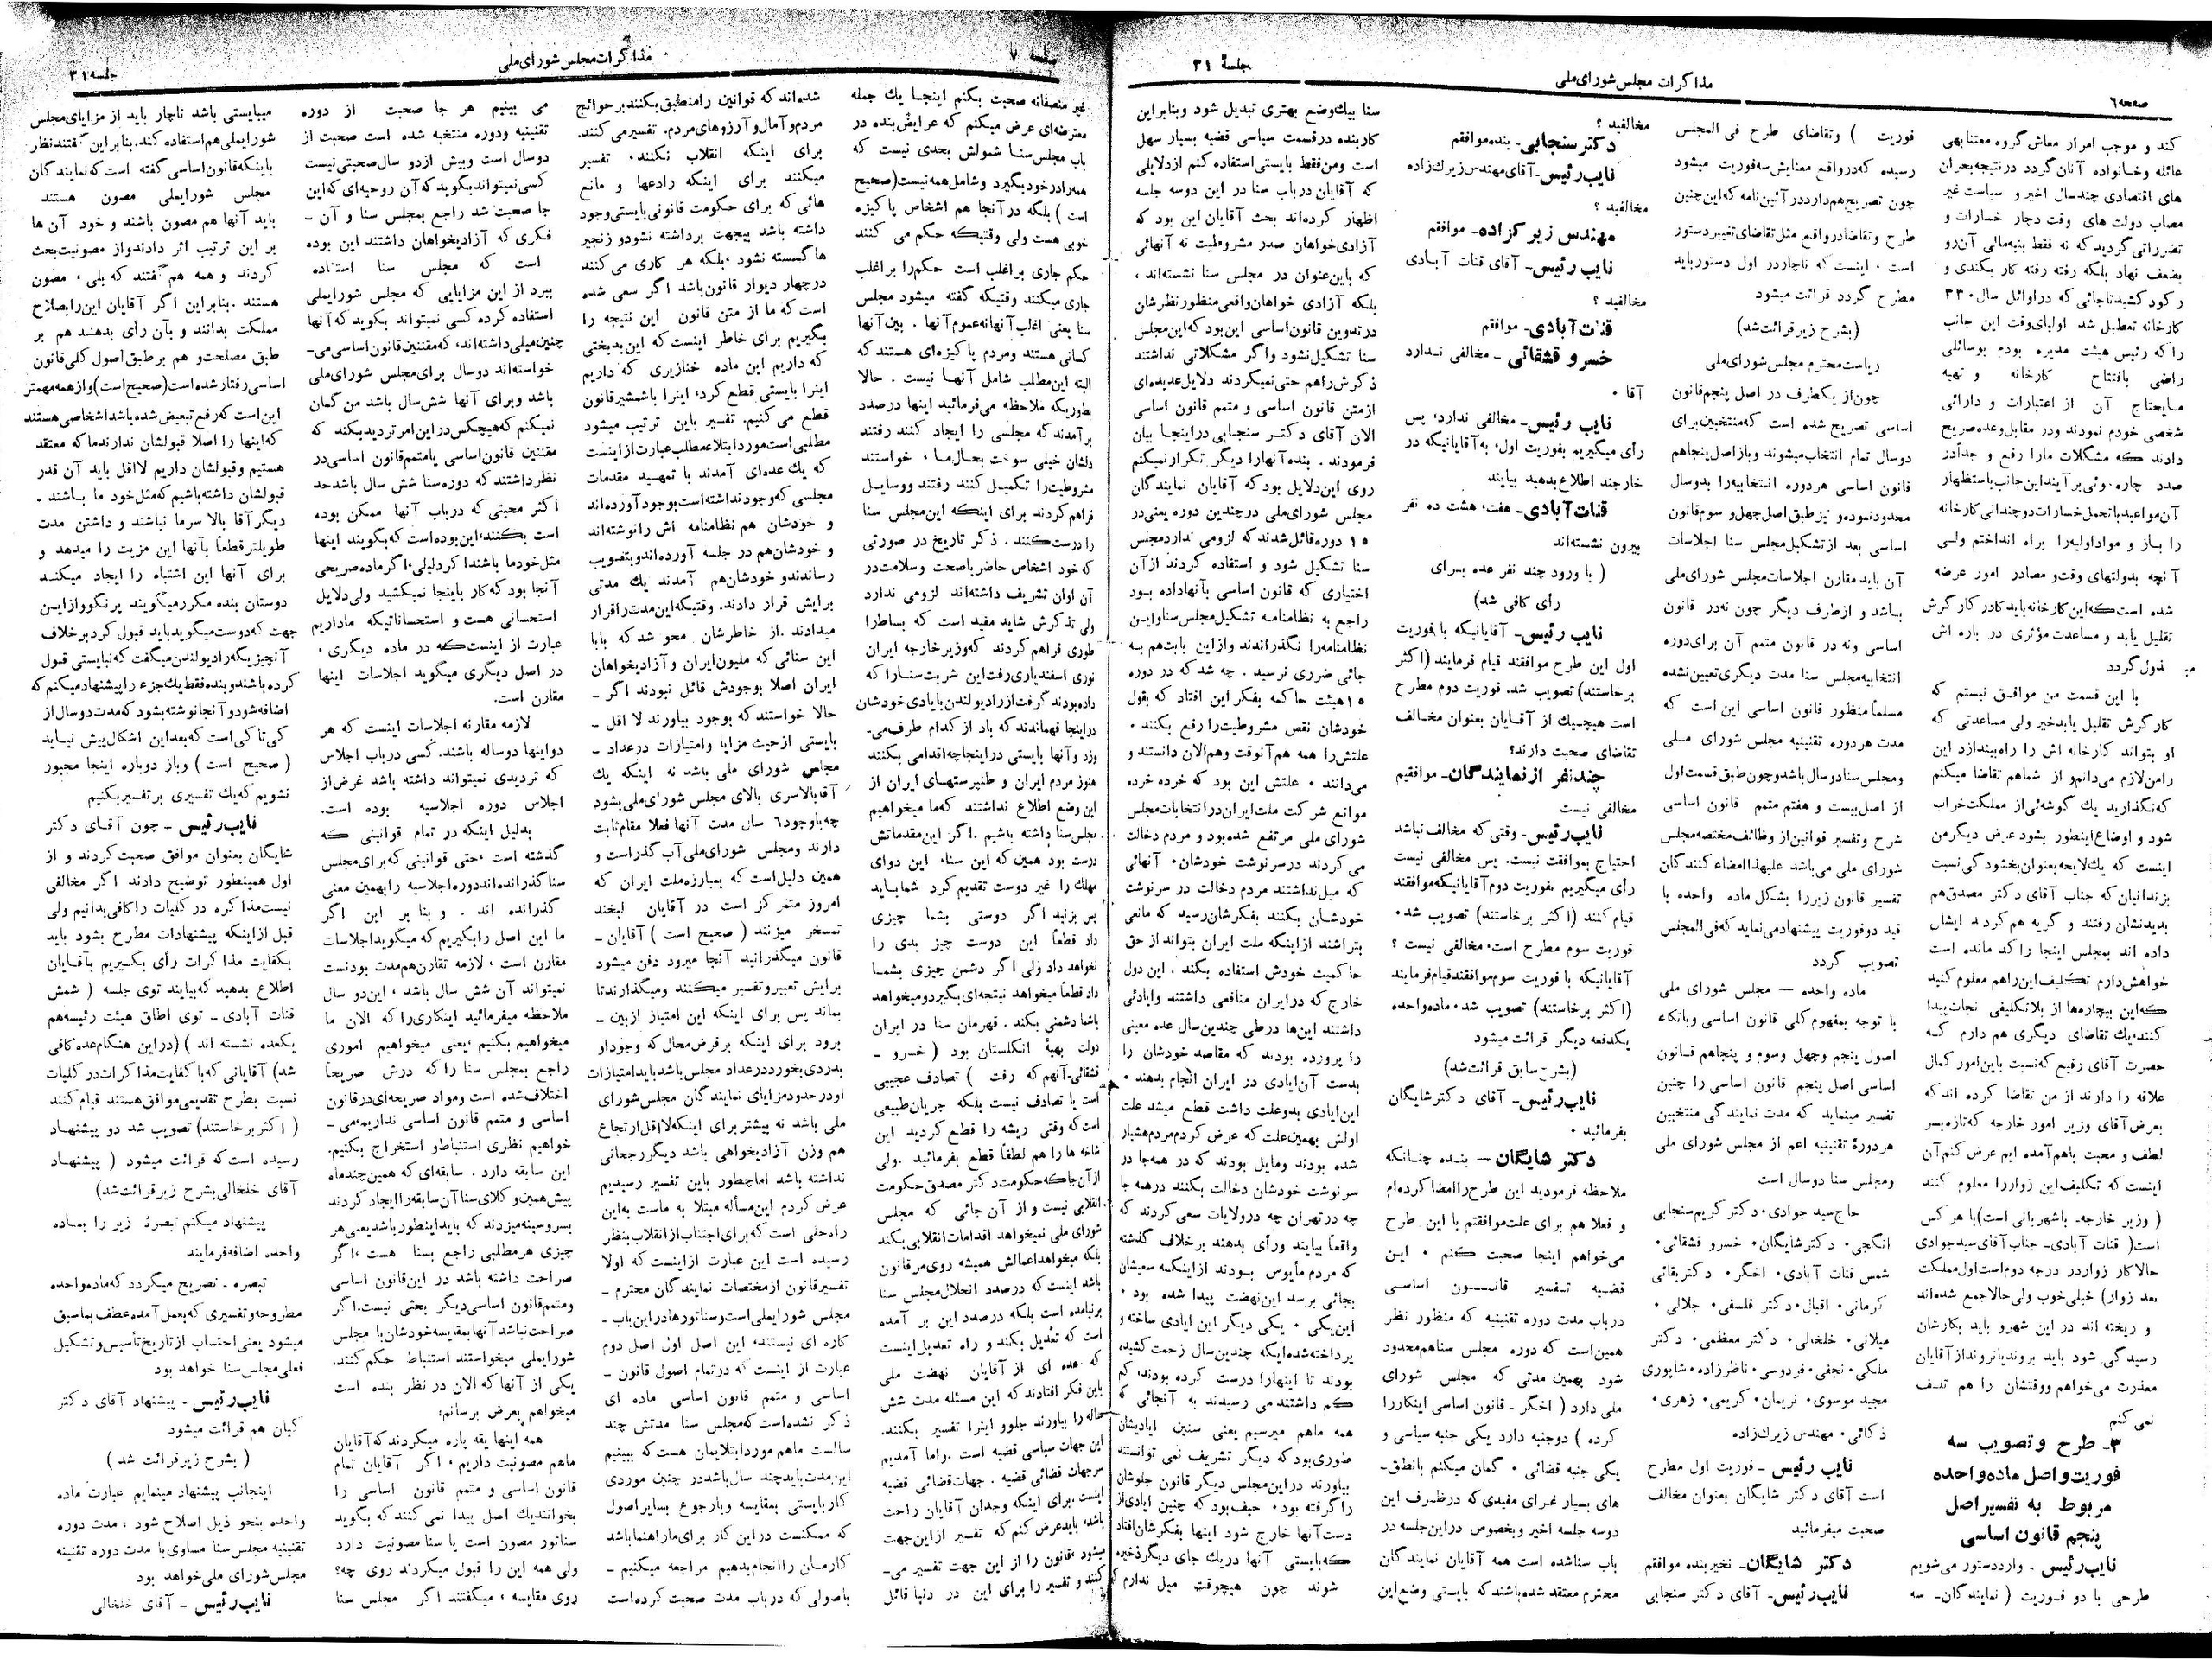 صفحه ٦
مذاکرات مجلس شورای ملی
جلسهٔ ۳۱
کند و موجب امرار معاش گروه معتنابهی
عائله و خانواده آنان گردد در نتیجه بحران
های اقتصادی چند سال اخیر و سیاست غیر
مصاب دولت های وقت دچار خسارات و
تضرراتی گردید که نه فقط بنیه مالی آن رو
بضعف نهاد بلکه رفته رفته کار بکندی و
رکود کشید تا جائی که در اوایل سال ۳۳۰
کارخانه تعطیل شد اولیای وقت این جانب
را که رئیس هیئت مدیره بودم بوسائلی
راضی بافتتاح کارخانه و تهیه
مایحتاج آن از اعتبارات و دارائی
شخصی خودم نمودند و در مقابل وعده صریح
دادند که مشکلات ما را رفع و جداً در
صدد چاره‌وئی برآیند این جانب باستظهار
آن مواعید با تحمل خسارات دوچندانی کارخانه
را باز و مواد اولیه را براه انداختم ولی
آنچه بدولتهای وقت و مصادر امور عرضه
شده است که این کارخانه باید کادر کارگرش
تقلیل یابد و مساعدت مؤثری در باره اش
مبذول گردد
با این قسمت من موافق نیستم که
کارگرش تقلیل یابد خیر ولی مساعدتی که
او بتواند کارخانه اش را راه بیندازد این
را من لازم می‌دانم و از شما هم تقاضا میکنم
که نگذارید یك گوشه‌ئی از مملکت خراب
شود و اوضاع اینطور بشود عرض دیگر من
اینست که یك لایحه بعنوان بخشودگی نسبت
بزندانیان که جناب آقای دکتر مصدق هم
بدیدنشان رفتند و گریه هم کردند ایشان
داده اند بمجلس اینجا راکد مانده است
خواهش دارم تکلیف این راهم معلوم کنید
که این بیچاره‌ها از بلاتکلیفی نجات پیدا
کنند، یك تقاضای دیگری هم دارم که
حضرت آقای رفیع که نسبت باین امور کمال
علاقه را دارند از من تقاضا کرده اند که
بعرض آقای وزیر امور خارجه که تازه بسر
لطف و محبت باهم آمده ایم عرض کنم آن
اینست که تکلیف این زوار را معلوم کنند
( وزیر خارجه۔ با شهربانی است) با هر کس
است( قنات آبادی۔ جناب آقای سید جوادی
حالا کار زوار در درجه دوم است اول مملکت
بعد زوار) خیلی خوب ولی حالا جمع شده‌اند
و ریخته اند در این شهر و باید بکارشان
رسیدگی شود باید بروند یا نروند از آقایان
معذرت می‌خواهم و وقتشان را هم تلف
نمی کنم
۳ـ طرح و تصویب سه
فوریت و اصل ماده واحده
مربوط به تفسیر اصل
پنجم قانون اساسی
نایب رئیس ـ وارد دستور می‌شویم
طرحی با دو فوریت ( نمایندگان۔ سه
فوریت ) و تقاضای طرح فی المجلس
رسیده که در واقع معنایش سه فوریت میشود
چون تصریح هم دارد در آئین نامه که این چنین
طرح و تقاضا در واقع مثل تقاضای تغییر دستور
است ، اینست که ناچار در اول دستور باید
مطرح گردد قرائت میشود
(بشرح زیر قرائت شد)
ریاست محترم مجلس شورای ملی
چون از یکطرف در اصل پنجم قانون
اساسی تصریح شده است که منتخبین برای
دو سال تمام انتخاب میشوند و باز اصل پنجاهم
قانون اساسی هر دوره انتخابیه را بدو سال
محدود نموده و نیز طبق اصل چهل و سوم قانون
اساسی بعد از تشکیل مجلس سنا اجلاسات
آن باید مقارن اجلاسات مجلس شورای ملی
باشد و از طرف دیگر چون نه در قانون
اساسی و نه در قانون متمم آن برای دوره
انتخابیه مجلس سنا مدت دیگری تعیین نشده
مسلماً منظور قانون اساسی این است که
مدت هر دوره تقنینیه مجلس شورای ملی
و مجلس سنا دو سال باشد و چون طبق قسمت اول
از اصل بیست و هفتم متمم قانون اساسی
شرح و تفسیر قوانین از وظائف مختصه مجلس
شورای ملی می‌باشد علیهذا امضاء کنندگان
تفسیر قانون زیر را بشکل ماده واحده با
قید دو فوریت پیشنهاد می نماید که فی المجلس
تصویب گردد
ماده واحده — مجلس شورای ملی
با توجه بمفهوم کلی قانون اساسی و باتکاء
اصول پنجم و چهل و سوم و پنجاهم قانون
اساسی اصل پنجم قانون اساسی را چنین
تفسیر مینماید که مدت نمایندگی منتخبین
هر دورهٔ تقنینیه اعم از مجلس شورای ملی
و مجلس سنا دو سال است
حاج سید جوادی ۰ دکتر کریم سنجابی
انگجی ۰ دکتر شایگان ۰ خسرو قشقائی ۰
شمس قنات آبادی ۰ اخگر ۰ دکتر بقائی
کرمانی ۰ اقبال ۰ دکتر فلسفی ۰ جلالی ۰
میلانی ۰ خلخالی ۰ دکتر معظمی ۰ دکتر
ملکی ۰ نجفی ۰ فردوسی ۰ ناظرزاده ۰ شاپوری
مجید موسوی ۰ نریمان ۰ کریمی ۰ زهری ۰
ذکائی ۰ مهندس زیرك زاده
نایب رئیس ـ فوریت اول مطرح
است آقای دکتر شایگان بعنوان مخالف
صحبت میفرمائید
دکتر شایگان۔ نخیر بنده موافقم
نایب رئیس۔ آقای دکتر سنجابی
مخالفید ؟
دکتر سنجابی۔ بنده موافقم
نایب رئیس۔ آقای مهندس زیرك زاده
مخالفید ؟
مهندس زیرکزاده۔ موافقم
نایب رئیس۔ آقای قنات آبادی
مخالفید ؟
قنات آبادی۔ موافقم
خسرو قشقائی ـ مخالفی ندارد
آقا ۰
نایب رئیس۔ مخالفی ندارد، پس
رأی میگیریم بفوریت اول، به آقایانیکه در
خارجند اطلاع بدهید بیایند
قنات آبادی۔ هفت، هشت ده نفر
بیرون نشسته‌اند
( با ورود چند نفر عده برای
رأی کافی شد)
نایب رئیس۔ آقایانیکه با فوریت
اول این طرح موافقند قیام فرمایند (اکثر
برخاستند) تصویب شد. فوریت دوم مطرح
است هیچیك از آقایان بعنوان مخالف
تقاضای صحبت دارند؟
چند نفر از نمایندگان۔ موافقیم
مخالفی نیست
نایب رئیس۔ وقتی که مخالف نباشد
احتیاج بموافقت نیست. پس مخالفی نیست
رأی میگیریم بفوریت دوم آقایانیکه موافقند
قیام کنند (اکثر برخاستند) تصویب شد ۰
فوریت سوم مطرح است، مخالفی نیست ؟
آقایانیکه با فوریت سوم موافقند قیام فرمایند
(اکثر برخاستند) تصویب شد ۰ ماده واحده
یکدفعه دیگر قرائت میشود
(بشرح سابق قرائت شد)
نایب رئیس۔ آقای دکتر شایگان
بفرمائید ۰
دکتر شایگان — بنده چنانکه
ملاحظه فرمودید این طرح را امضا کرده‌ام
و فعلا هم برای علت موافقتم با این طرح
می‌خواهم اینجا صحبت کنم ۰ این
قضیه تفسیر قانون اساسی
در باب مدت دوره تقنینیه که منظور نظر
همین است که دوره مجلس سنا هم محدود
شود بهمین مدتی که مجلس شورای
ملی دارد ( اخگر ـ قانون اساسی اینکار را
کرده ) دو جنبه دارد یکی جنبه سیاسی و
یکی جنبه قضائی ۰ گمان میکنم با نطق‌ـ
های بسیار غرای مفیدی که در ظرف این
دو سه جلسه اخیر و بخصوص در این جلسه در
باب سنا شده است همه آقایان نمایندگان
محترم معتقد شده باشند که بایستی وضع این
سنا بیك وضع بهتری تبدیل شود و بنابراین
کار بنده در قسمت سیاسی قضیه بسیار سهل
است و من فقط بایستی استفاده کنم از دلایلی
که آقایان در باب سنا در این دو سه جلسه
اظهار کرده‌اند بحث آقایان این بود که
آزادی خواهان صدر مشروطیت نه آنهائی
که باین عنوان در مجلس سنا نشسته‌اند ،
بلکه آزادی خواهان واقعی منظور نظرشان
در تدوین قانون اساسی این بود که این مجلس
سنا تشکیل نشود و اگر مشکلاتی نداشتند
ذکرش را هم حتی نمیکردند دلایل عدیده‌ای
از متن قانون اساسی و متمم قانون اساسی
الان آقای دکتر سنجابی در اینجا بیان
فرمودند . بنده آنها را دیگر تکرار نمیکنم
روی این دلایل بود که آقایان نمایندگان
مجلس شورای ملی در چندین دوره یعنی در
۱۵ دوره قائل شدند که لزومی ندارد مجلس
سنا تشکیل شود و استفاده کردند از آن
اختیاری که قانون اساسی بآنها داده بود
راجع به نظامنامه تشکیل مجلس سنا و این
نظامنامه را نگذراندند و از این بابت هم به
جائی ضرری نرسید . چه شد که در دوره
۱۵ هیئت حاکمه بفکر این افتاد که بقول
خودشان نقص مشروطیت را رفع بکنند .
علتش را همه هم آنوقت و هم الان دانستند و
می‌دانند ۰ علتش این بود که خرده خرده
موانع شرکت ملت ایران در انتخابات مجلس
شورای ملی مرتفع شده بود و مردم دخالت
می کردند در سرنوشت خودشان ۰ آنهائی
که میل نداشتند مردم دخالت در سرنوشت
خودشان بکنند بفکرشان رسید که مانعی
بتراشند از اینکه ملت ایران بتواند از حق
حاکمیت خودش استفاده بکند . این دول
خارج که در ایران منافعی داشتند و ایادئی
داشتند این‌ها در طی چندین سال عده معینی
را پرورده بودند که مقاصد خودشان را
بدست آن ایادی در ایران انجام بدهند ۰
این ایادی بدو علت داشت قطع میشد علت
اولش بهمین علت که عرض کردم مردم هشیار
شده بودند و مایل بودند که در همه جا در
سرنوشت خودشان دخالت بکنند در همه جا
چه در تهران چه در ولایات سعی کردند که
واقعاً بیایند و رأی بدهند برخلاف گذشته
که مردم مأیوس بودند از اینکه سعیشان
بجائی برسد این نهضت پیدا شده بود ۰
این یکی ۰ یکی دیگر این ایادی ساخته و
پرداخته شده‌ایکه چندین سال زحمت کشیده
بودند تا اینها را درست کرده بودند، کم
کم داشتند می رسیدند به آنجائی که
همه ما هم میرسیم یعنی سنین ایادیشان
طوری بود که دیگر تشریف نمی توانستند
بیاورند در این مجلس دیگر قانون جلوشان
را گرفته بود ۰ حیف بود که چنین ایادی از
دست آنها خارج شود اینها بفکرشان افتاد
که بایستی آنها در یك جای دیگر ذخیره
شوند چون هیچوقت میل ندارم که
صفحه ۷
مذاکرات مجلس شورای ملی
جلسه ۳۱
غیر منصفانه صحبت بکنم اینجا یك جمله
معترضه‌ای عرض میکنم که عرایض بنده در
باب مجلس سنا شمولش بحدی نیست که
همه را در خود بگیرد و شامل همه نیست(صحیح
است ) بلکه در آنجا هم اشخاص پاکیزه
خوبی هست ولی وقتیکه حکم می کنند
حکم جاری بر اغلب است حکم را بر اغلب
جاری میکنند وقتیکه گفته میشود مجلس
سنا یعنی اغلب آنها نه عموم آنها . بین آنها
کسانی هستند و مردم پاکیزه‌ای هستند که
البته این مطلب شامل آنها نیست . حالا
بطوریکه ملاحظه می‌فرمائید اینها در صدد
برآمدند که مجلسی را ایجاد کنند رفتند
دلشان خیلی سوخت بحال ما ، خواستند
مشروطیت را تکمیل کنند رفتند و وسایل
فراهم کردند برای اینکه این مجلس سنا
را درست کنند . ذکر تاریخ در صورتی
که خود اشخاص حاضر با صحت و سلامت در
آن اوان تشریف داشته‌اند لزومی ندارد
ولی تذکرش شاید مفید است که بساط را
طوری فراهم کردند که وزیر خارجه ایران
نوری اسفندیاری رفت این شربت سنا را که
داده بودند گرفت از رادیو لندن با ایادی خودشان
در اینجا فهماندند که باد از کدام طرف می‌ـ
وزد و آنها بایستی در اینجا چه اقدامی بکنند
هنوز مردم ایران و ملیون پرستهای ایران از
این وضع اطلاع نداشتند که ما میخواهیم
مجلس سنا داشته باشیم . اگر این مقدماتش
درست بود همین که این سنا، این دوای
مهلك را غیر دوست تقدیم کرد شما باید
پس بزنید اگر دوستی بشما چیزی
داد قطعاً این دوست چیز بدی را
نخواهد داد ولی اگر دشمن چیزی بشما
داد قطعاً میخواهد نتیجه‌ای بگیرد و میخواهد
باشما دشمنی بکند . قهرمان سنا در ایران
دولت بهیهٔ انگلستان بود ( خسرو ـ
قشقائی۔ آنهم که رفت ) تصادف عجیبی
است یا تصادف نیست بلکه جریان طبیعی
است که وقتی ریشه را قطع کردید این
شاخه ها را هم لطفاً قطع بفرمائید . ولی
از آن جا که حکومت دکتر مصدق حکومت
انقلابی نیست و از آن جائی که مجلس
شورای ملی نمیخواهد اقدامات انقلابی بکند
بلکه میخواهد اعمالش همیشه روی مر قانون
باشد اینست که در صدد انحلال مجلس سنا
برنیامده است بلکه در صدد این بر آمده
است که تعدیل بکند و راه تعدیل اینست
که عده ای از آقایان نهضت ملی
باین فکر افتادند که این مسئله مدت شش
ساله را بیاورند جلو و اینرا تفسیر بکنند.
این جهات سیاسی قضیه است . و اما آمدیم
سر جهات قضائی قضیه . جهات قضائی قضیه
اینست، برای اینکه وجدان آقایان راحت
باشد، باید عرض کنم که تفسیر از این جهت
میشود ، قانون را از این جهت تفسیر می‌ـ
کنند و تفسیر را برای این در دنیا قائل
شده‌اند که قوانین را منطبق بکنند بر حوائج
مردم و آمال و آرزوهای مردم. تفسیر می کنند.
برای اینکه انقلاب نکنند، تفسیر
میکنند برای اینکه رادعها و مانع
هائی که برای حکومت قانونی بایستی وجود
داشته باشد بیجهت برداشته نشود و زنجیر
ها گسسته نشود ، بلکه هر کاری می کنند
در چهار دیوار قانون باشد اگر سعی شده
است که ما از متن قانون این نتیجه را
بگیریم برای خاطر اینست که این بدبختی
که داریم این ماده خنازیری که داریم
اینرا بایستی قطع کرد، اینرا با شمشیر قانون
قطع می کنیم. تفسیر باین ترتیب میشود
مطلبی است مورد ابتلا عمطلب عبارت از اینست
که یك عده‌ای آمدند با تمهید مقدمات
مجلسی که وجود نداشته است بوجود آورده‌اند
و خودشان هم نظامنامه اش را نوشته‌اند
و خودشان هم در جلسه آورده‌اند و بتصویب
رساندند و خودشان هم آمدند یك مدتی
برایش قرار دادند. وقتیکه این مدت را قرار
میدادند . از خاطرشان محو شد که بابا
این سنائی که ملیون ایران و آزادیخواهان
ایران اصلا بوجودش قائل نبودند اگر ـ
حالا خواستند که بوجود بیاورند لا اقل ـ
بایستی از حیث مزایا و امتیازات در عداد ـ
مجلس شورای ملی باشد نه اینکه یك
آقا بالاسری بالای مجلس شورای ملی بشود
چه با وجود ٦ سال مدت آنها فعلا مقام ثابت
دارند و مجلس شورای ملی آب گذر است و
همین دلیل است که بمبارزه ملت ایران که
امروز متمرکز است در آقایان لبخند
تمسخر میزنند ( صحیح است ) آقایان ـ
قانون میگذرانید آنجا میرود دفن میشود
برایش تعبیر و تفسیر میکنند و میگذارند تا
بماند پس برای اینکه این امتیاز از بین ـ
برود برای اینکه بر فرض محال که وجود او
بدردی بخورد در عداد مجلس باشد باید امتیازات
او در حدود مزایای نمایندگان مجلس شورای
ملی باشد نه بیشتر برای اینکه لااقل ارتجاع
هم وزن آزادیخواهی باشد دیگر رجحانی
نداشته باشد اما چطور باین تفسیر رسیدیم
عرض کردم این مسأله مبتلا به ماست به این
راه حلی است که برای اجتناب از انقلاب بنظر
رسیده است این عبارت از اینست که اولا
تفسیر قانون از مختصات نمایندگان محترم ـ
مجلس شورایملی است و سناتورها در این باب ـ
کاره ای نیستند، این اصل اول اصل دوم
عبارت از اینست که در تمام اصول قانون ـ
اساسی و متمم قانون اساسی ماده ای
ذکر نشده است که مجلس سنا مدتش چند
سالست ما هم مورد ابتلایمان هست که ببینیم
این مدت باید چند سال باشد در چنین موردی
کار بایستی بمقایسه و بارجوع بسایر اصول
که ممکنست در این کار برای ما راهنما باشد
کارمان را انجام بدهیم مراجعه میکنیم ـ
باصولی که در باب مدت صحبت کرده است
می بینیم هر جا صحبت از دوره
تقنینیه و دوره منتخبه شده است صحبت از
دو سال است و بیش از دو سال صحبتی نیست
کسی نمیتواند بگوید که آن روحیه‌ای که این
جا صحبت شد راجع بمجلس سنا و آن ـ
فکری که آزادیخواهان داشتند این بوده
است که مجلس سنا استفاده
ببرد از این مزایایی که مجلس شورایملی
استفاده کرده کسی نمیتواند بگوید که آنها
چنین میلی داشته‌اند، که مقننین قانون اساسی می‌ـ
خواسته‌اند دو سال برای مجلس شورای ملی
باشد و برای آنها شش سال باشد من گمان
نمیکنم که هیچکس در این امر تردید بکند که
مقننین قانون اساسی یا متمم قانون اساسی در
نظر داشتند که دوره سنا شش سال باشد حد
اکثر محبتی که در باب آنها ممکن بوده
است بکنند، این بوده است که بگویند اینها
مثل خود ما باشند اگر دلیلی، اگر ماده صریحی
آنجا بود که کار باینجا نمیکشید ولی دلایل
استحسانی هست و استحساناتیکه ما داریم
عبارت از اینست که در ماده دیگری ،
در اصل دیگری میگوید اجلاسات اینها
مقارن است.
لازمه مقارنه اجلاسات اینست که هر
دو اینها دو ساله باشند. کسی در باب اجلاس
که تردیدی نمیتواند داشته باشد غرض از
اجلاس دوره اجلاسیه بوده است.
بدلیل اینکه در تمام قوانینی که
گذشته است ، حتی قوانینی که برای مجلس
سنا گذرانده اند دوره اجلاسیه را بهمین معنی
گذرانده اند . و بنا بر این اگر
ما این اصل را بگیریم که میگوید اجلاسات
مقارن است ، لازمه تقارن هم مدت بودنست
نمیتواند آن شش سال باشد ، این دو سال
ملاحظه میفرمائید اینکاری را که الان ما
میخواهیم بکنیم ، یعنی میخواهیم اموری
راجع بمجلس سنا را که درش صریحاً
اختلاف شده است و مواد صریحه‌ای در قانون
اساسی و متمم قانون اساسی نداریم ، می‌ـ
خواهیم نظری استنباط و استخراج بکنیم.
این سابقه دارد . سابقه‌ای که همین چند ماه
پیش همین وکلای سنا آن سابقه را ایجاد کردند
بسر و سینه میزدند که باید اینطور باشد یعنی هر
چیزی هر مطلبی راجع بسنا هست ، اگر
صراحت داشته باشد در این قانون اساسی
و متمم قانون اساسی دیگر بحثی نیست. اگر
صراحت نباشد آنها بمقایسه خودشان با مجلس
شورایملی میخواستند استنباط حکم کنند.
یکی از آنها که الان در نظر بنده است
میخواهم بعرض برسانم:
همه اینها یقه پاره میکردند که آقایان
ما هم مصونیت داریم ، اگر آقایان تمام
قانون اساسی و متمم قانون اساسی را
بخوانند یك اصل پیدا نمی کنند که بگوید
سناتور مصون است یا سنا مصونیت دارد
ولی همه این را قبول میکردند روی چه؟
روی مقایسه ، میگفتند اگر مجلس سنا
میبایستی باشد ناچار باید از مزایای مجلس
شورایملی هم استفاده کند. بنابراین گفتند نظر
باینکه قانون اساسی گفته است که نمایندگان
مجلس شورایملی مصون هستند
باید آنها هم مصون باشند و خود آن ها
بر این ترتیب اثر دادند و از مصونیت بحث
کردند و همه هم گفتند که بلی ، مصون
هستند . بنابراین اگر آقایان این را بصلاح
مملکت بدانند و بآن رأی بدهند هم بر
طبق مصلحت و هم بر طبق اصول کلی قانون
اساسی رفتار شده است (صحیح است) و از همه مهمتر
این است که رفع تبعیض شده باشد اشخاصی هستند
که اینها را اصلا قبولشان ندارند ما که معتقد
هستیم و قبولشان داریم لااقل باید آن قدر
قبولشان داشته باشیم که مثل خود ما باشند ـ
دیگر آقا بالا سر ما نباشند و داشتن مدت
طویلتر قطعاً بآنها این مزیت را میدهد و
برای آنها این اشتباه را ایجاد میکند
دوستان بنده مکرر میگویند پرنگو و از این
جهت که دوست میگوید باید قبول کرد بر خلاف
آنچیزیکه رادیو لندن میگفت که نبایستی قبول
کرده باشند و بنده فقط یك جزء را پیشنهاد میکنم که
اضافه شود و آنجا نوشته بشود که مدت دو سال از
کی تا کی است که بعد این اشکال پیش نیاید
( صحیح است ) و باز دوباره اینجا مجبور
نشویم که یك تفسیری بر تفسیر بکنیم
نایب رئیس ـ چون آقای دکتر
شایگان بعنوان موافق صحبت کردند و از
اول همینطور توضیح دادند اگر مخالفی
نیست مذاکره در کلیات را کافی بدانیم ولی
قبل از اینکه پیشنهادات مطرح بشود باید
بکفایت مذاکرات رأی بگیریم بآقایان
اطلاع بدهید که بیایند توی جلسه ( شمش
قنات آبادی ـ توی اطاق هیئت رئیسه هم
یکعده نشسته اند ) (در این هنگام عده کافی
شد) آقایانی که با کفایت مذاکرات در کلیات
نسبت بطرح تقدیمی موافق هستند قیام کنند
( اکثر برخاستند) تصویب شد دو پیشنهاد
رسیده است که قرائت میشود ( پیشنهاد
آقای خلخالی بشرح زیر قرائت شد)
پیشنهاد میکنم تبصرهٔ زیر را بماده
واحده اضافه فرمایند
تبصره ـ تصریح میگردد که ماده واحده
مطروحه و تفسیری که بعمل آمده عطف بماسبق
میشود یعنی احتساب از تاریخ تأسیس و تشکیل
فعلی مجلس سنا خواهد بود
نایب رئیس ـ پیشنهاد آقای دکتر
کیان هم قرائت میشود
( بشرح زیر قرائت شد )
اینجانب پیشنهاد مینمایم عبارت ماده
واحده بنحو ذیل اصلاح شود ، مدت دوره
تقنینیه مجلس سنا مساوی با مدت دوره تقنینه
مجلس شورای ملی خواهد بود
نایب رئیس ـ آقای خلخالی